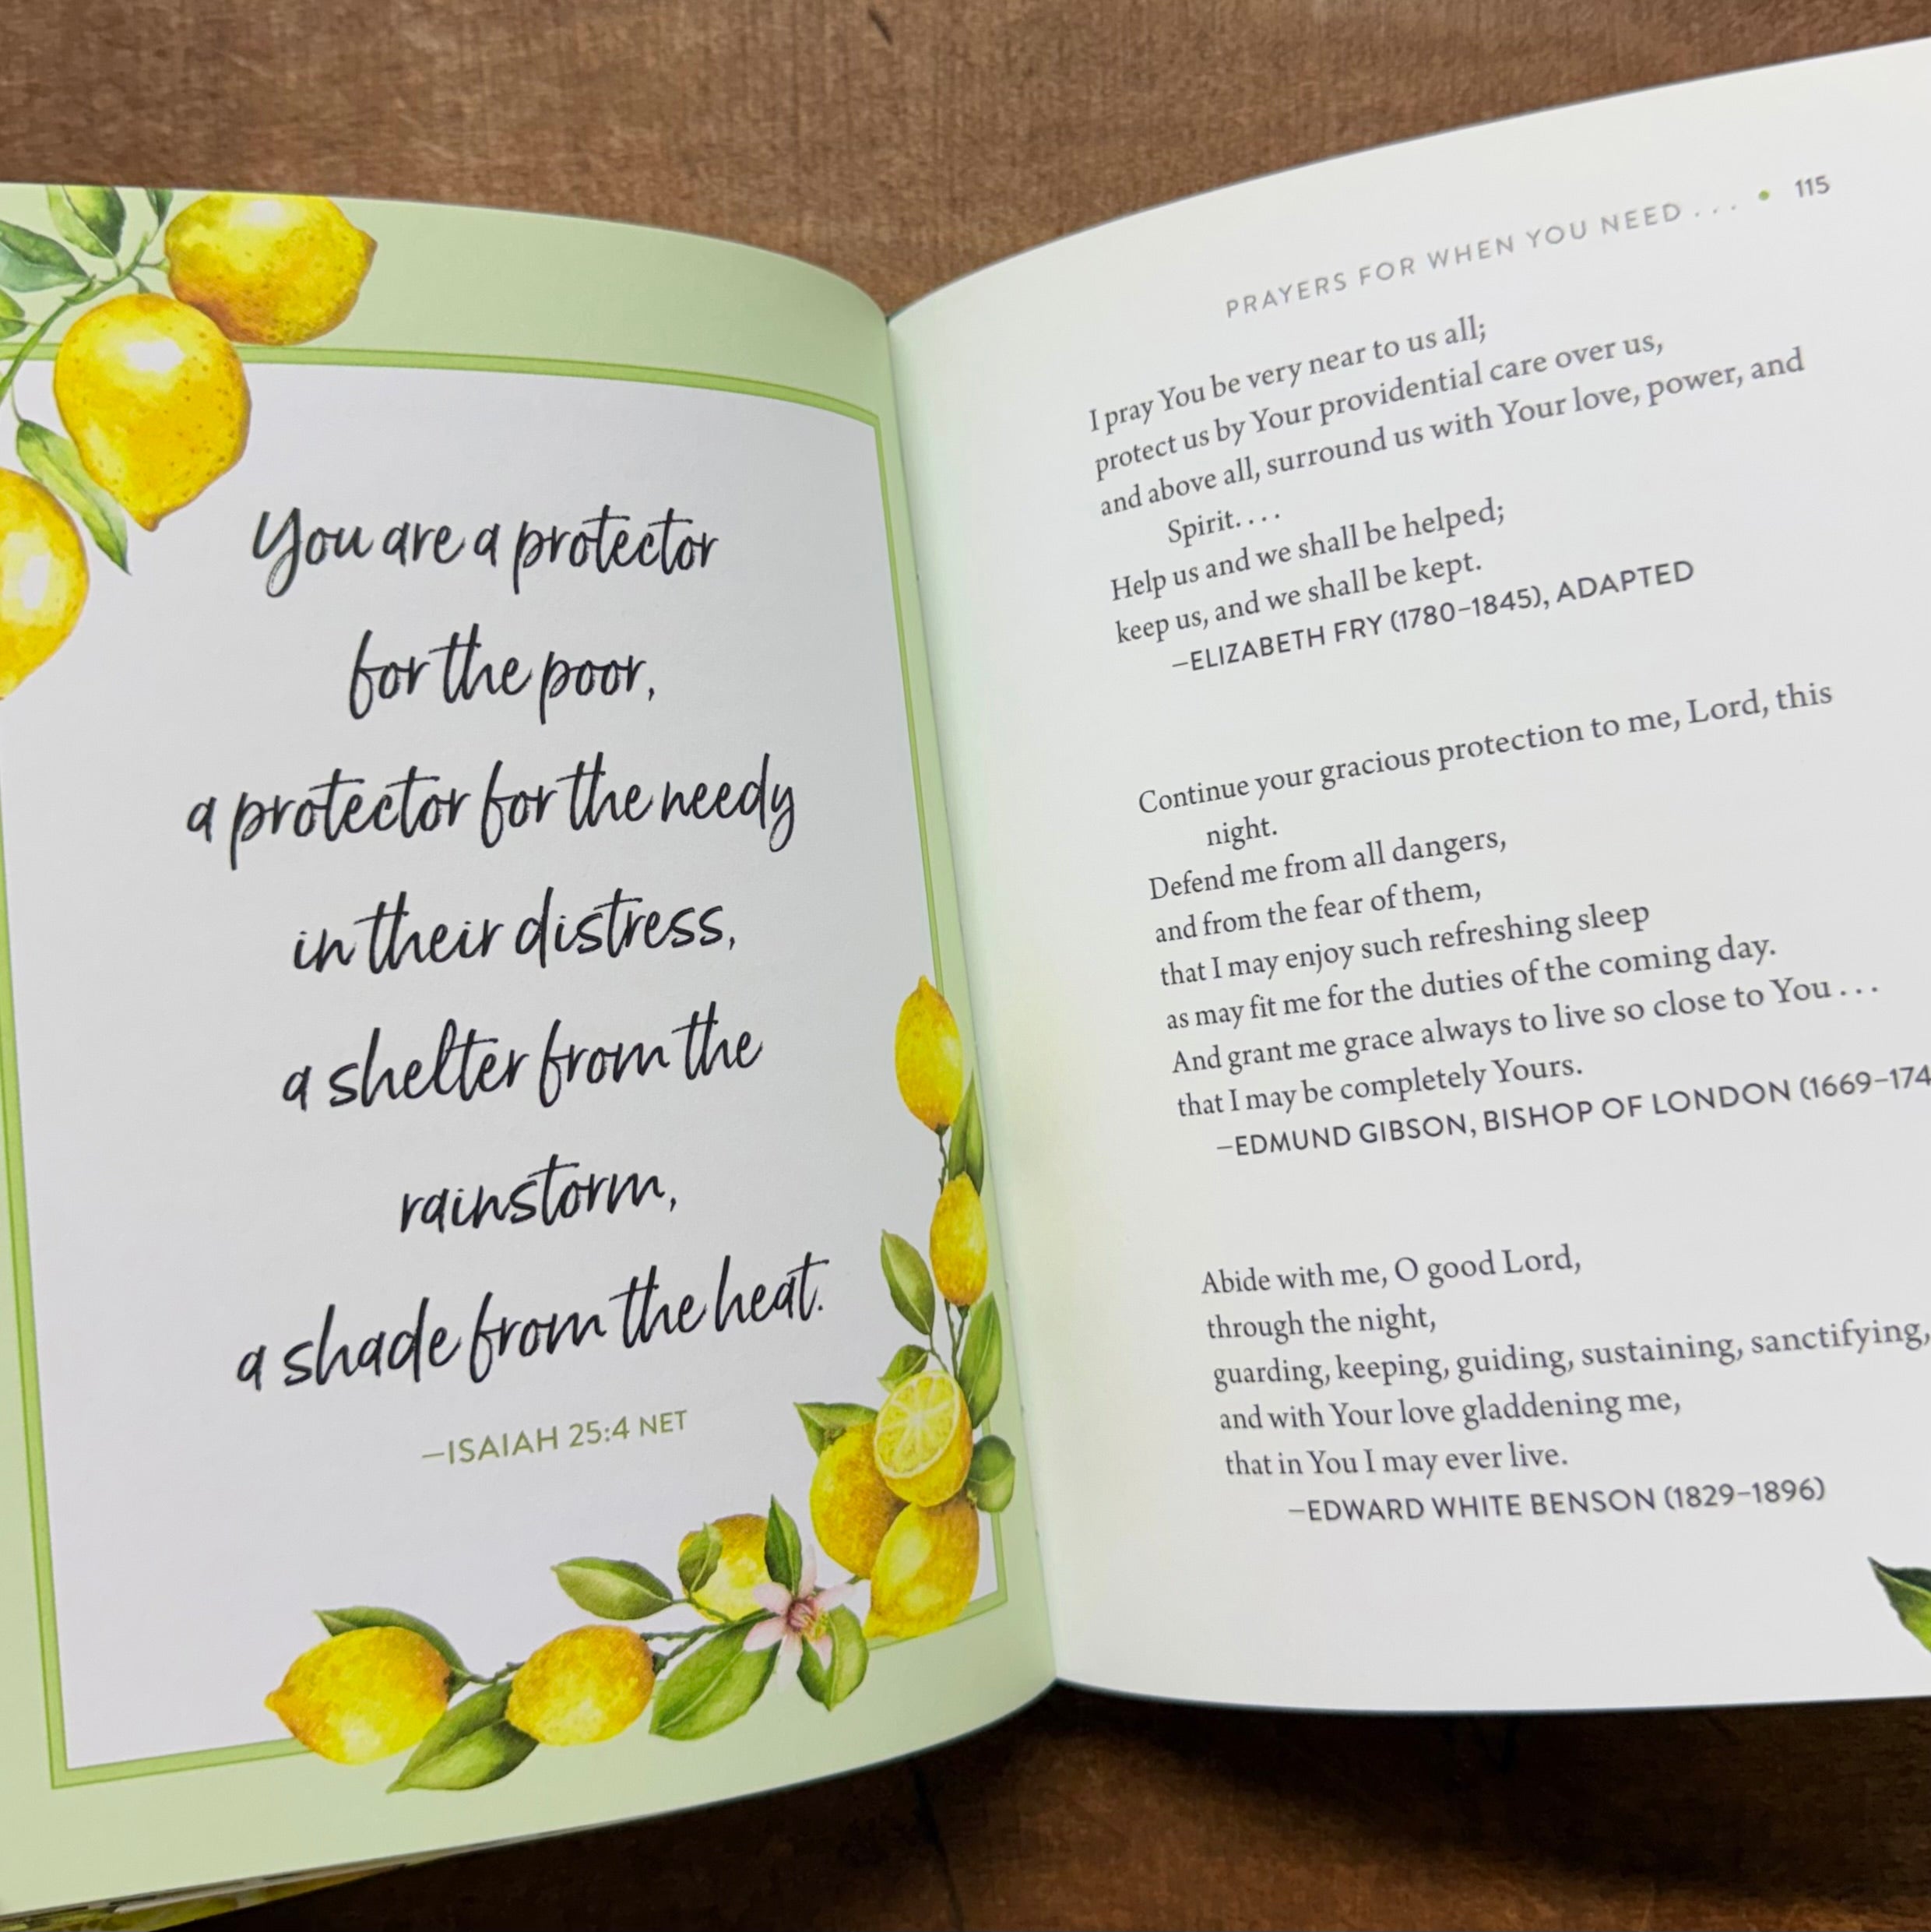 You are a protector
for the poor,
a protector for the needy
in their distress,
a shelter from the
rainstorm,
a shade from the heat.
–ISAIAH 25:4 NET
PRAYERS FOR WHEN YOU NEED . . . • 115
I pray You be very near to us all;
protect us by Your providential care over us,
and above all, surround us with Your love, power, and
Spirit. . . .
Help us and we shall be helped;
keep us, and we shall be kept.
–ELIZABETH FRY (1780–1845), ADAPTED
Continue your gracious protection to me, Lord, this
night.
Defend me from all dangers,
and from the fear of them,
that I may enjoy such refreshing sleep
as may fit me for the duties of the coming day.
And grant me grace always to live so close to You . . .
that I may be completely Yours.
–EDMUND GIBSON, BISHOP OF LONDON (1669–174
Abide with me, O good Lord,
through the night,
guarding, keeping, guiding, sustaining, sanctifying,
and with Your love gladdening me,
that in You I may ever live.
–EDWARD WHITE BENSON (1829–1896)